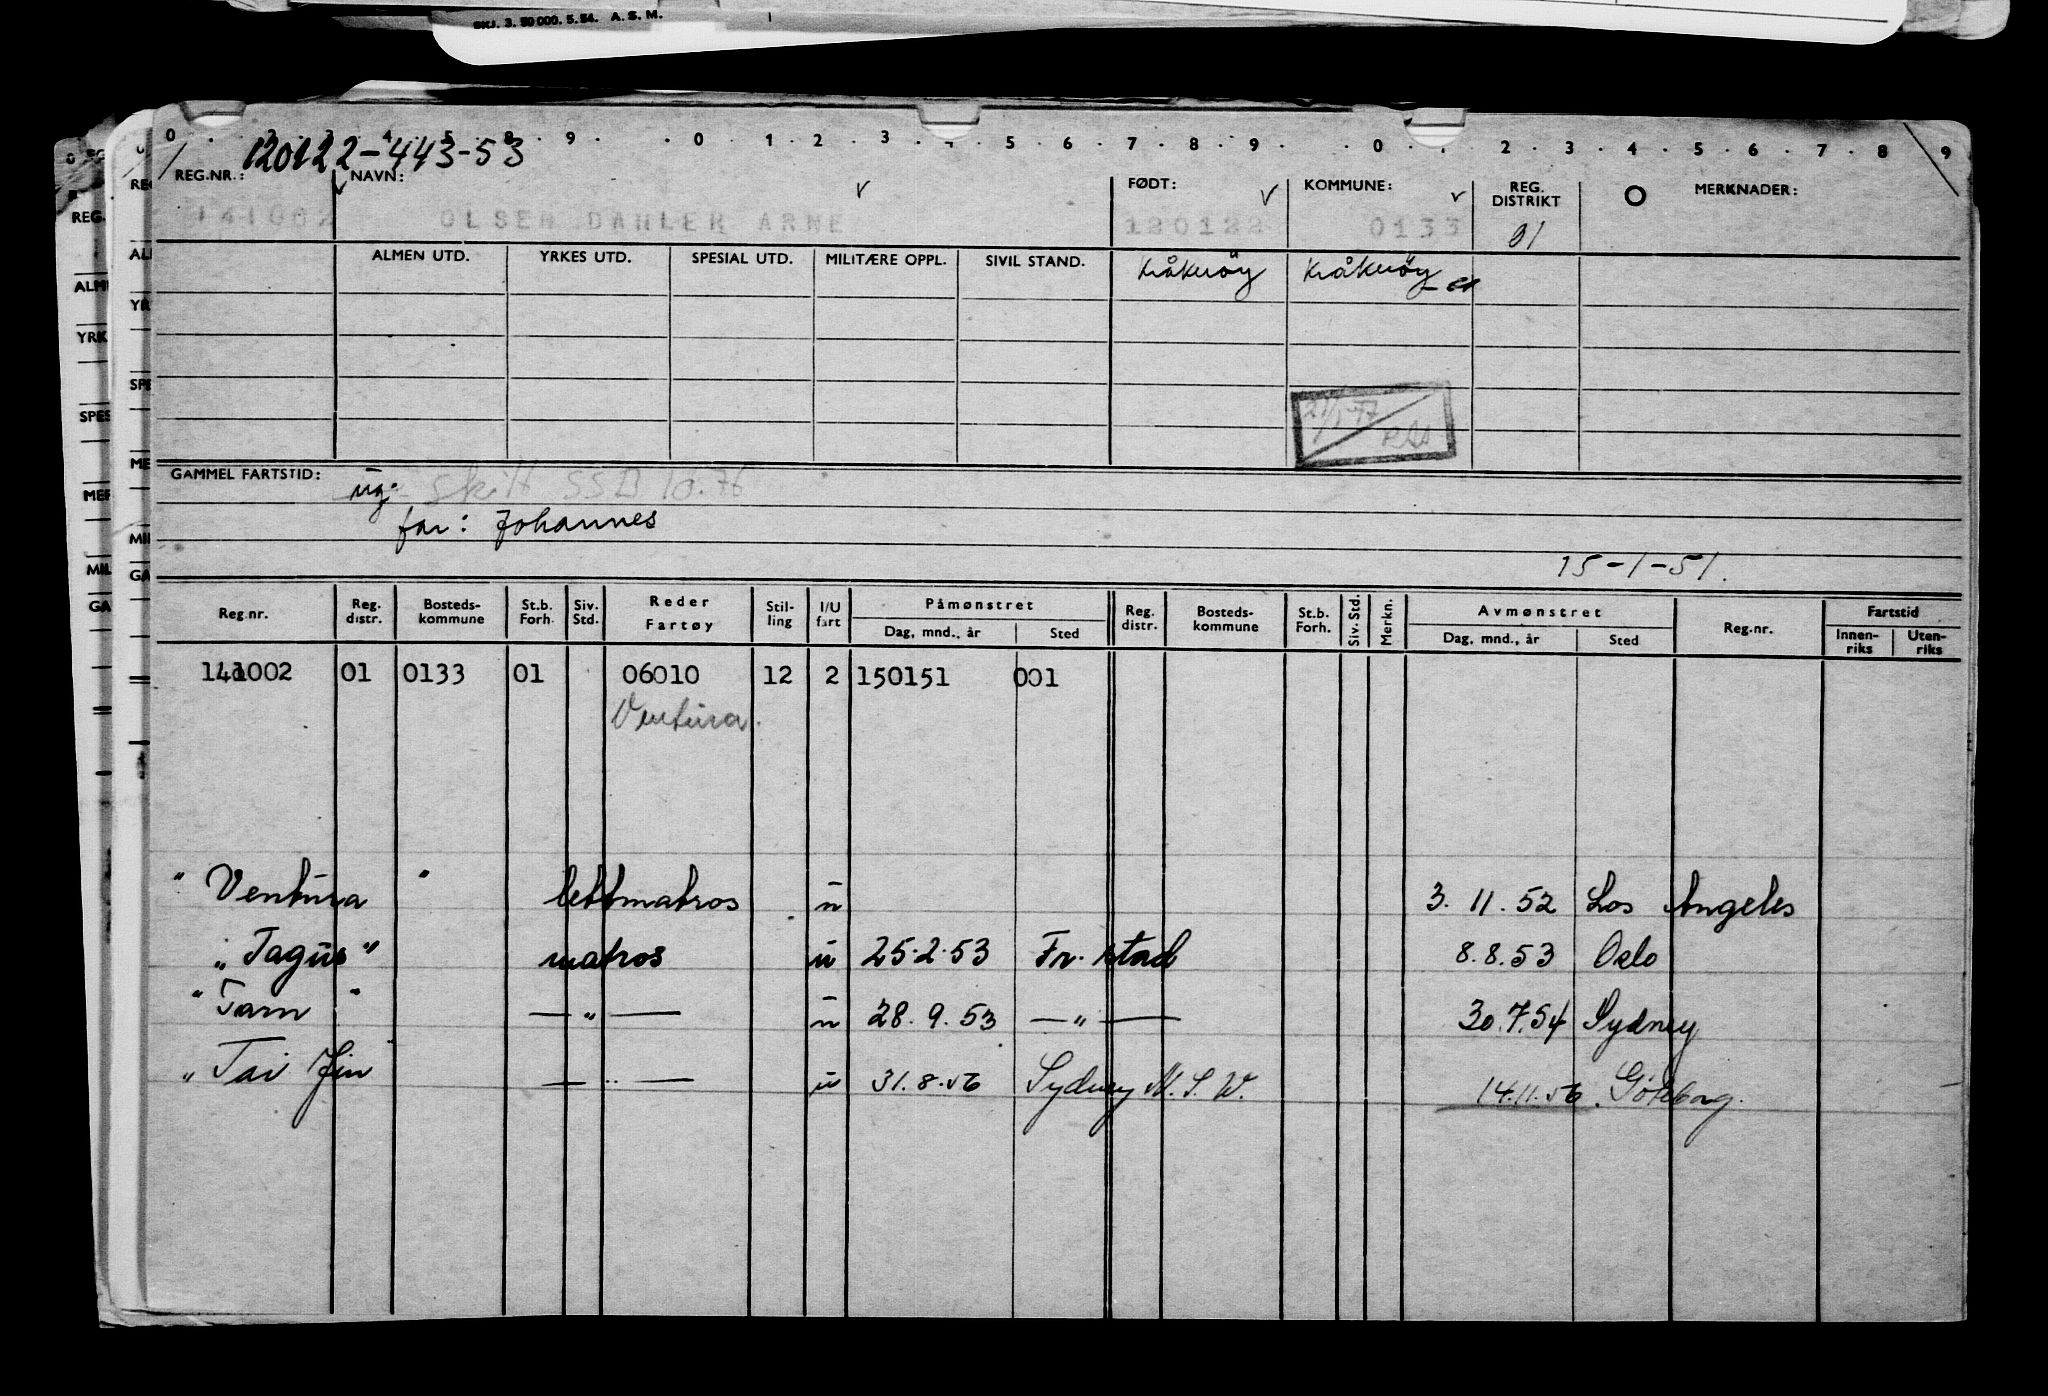 SKJ. 3. 50 000. 5. 54. A. S. M.
0 . . 2 . 3 . 4 . 5 . 8 . 9 . . . 0 . 1 2 . 3 . 4 . 5 . . 7 . 8 . 9 . . . 0 . 1 . 2 . 3 . 4 . 5 . 6 . 7 . 8 . 9
120122-443-53
REG.NR.: NAVN: FØDT: KOMMUNE: REG. DISTRIKT O MERKNADER:
141002 OLSEN DAHLER ARNE 120122 0133 01
ALMEN UTD. YRKES UTD. SPESIAL UTD. MILITÆRE OPPL. SIVIL STAND. Kråkerøy Kråkerøy
GAMMEL FARTSTID: ug. Skilt SSB 10.76
far: Johannes
15-1-51.
Reg.nr. Reg. distr. Bosteds-kommune St.b. Forh. Siv. Std. Reder Fartøy Stil-ling I/U fart Påmønstret Dag, mnd., år Sted Reg. distr. Bosteds-kommune St.b. Forh. Siv. Std. Merkn. Avmønstret Dag, mnd., år Sted Reg.nr. Fartstid Innen-riks Uten-riks
141002 01 0133 01 06010 12 2 150151 001
Ventura.
" Ventura " lettmatros u 3. 11. 52 Los Angeles
"Tagus" matros u 25.2.53 Fr.stad 8.8.53 Oslo
"Tarn" —"— u 28.9.53 —"— 30.7.54 Sydney
"Tai Jin —"— u 31.8.56 Sydney N.S.W. 14.11.56. Göteborg.